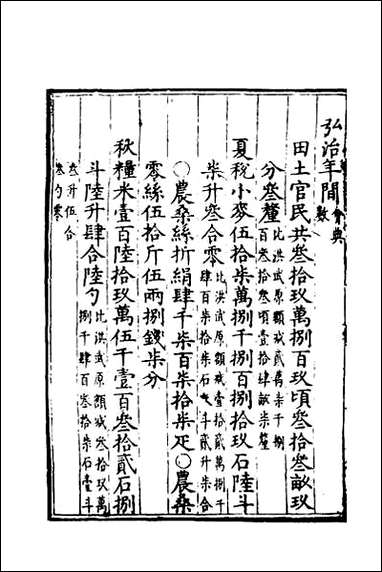 弘治年間會典數
田土官民共叁拾玖萬捌百玖頃叁拾叁畝玖
分叁釐比洪武原額減貳萬柒千捌百叁拾叁頃壹拾肆畝柒釐
夏稅小麥伍拾柒萬捌千捌百捌拾玖石陸斗
柒升叁合零比洪武原額減壹拾貳萬捌千肆百柒拾柒石貳斗貳升柒合
○農桑絲折絹肆千柒百柒拾柒疋○農桑
零絲伍拾斤伍兩捌錢柒分
秋糧米壹百陸拾玖萬伍千壹百叁拾貳石捌
斗陸升肆合陸勺比洪武原額減叁拾玖萬捌千肆百叁拾柒石壹斗
叁升伍合叁勺零